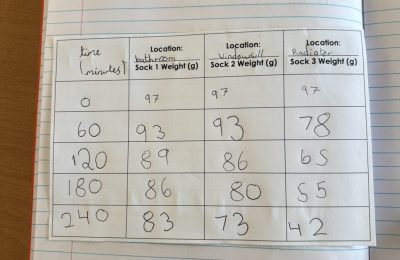 time Location: Location: Location:
(minutes) bathroom Windowsill Radiator
Sock 1 Weight (g) Sock 2 Weight (g) Sock 3 Weight (g)
0 97 97 97
60 93 93 78
120 89 86 65
180 86 80 55
240 83 73 42